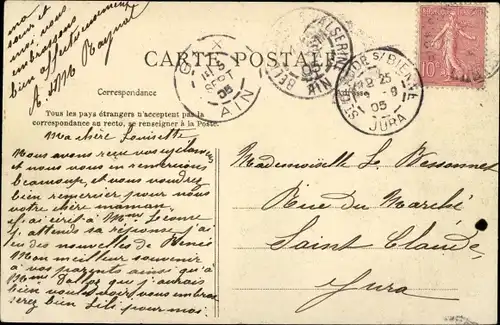 ma
sœur et
moi vous
embrassons
bien affectueusement
A. Raynal
CARTE POSTALE
Correspondance
Tous les pays étrangers n'acceptent pas la
correspondance au recto, se renseigner à la Poste.
GEX
9 SEPT
05
AIN
BELLEGARDE-S-VALSERINE
05
AIN
ST CLAUDE S/ BIENNE
12 25
9
05
JURA
10
Ma chère Louisette
Nous avons reçu vos
et nous vous en remercions
beaucoup, et vous voudrez
bien remercier pour nous
votre chère maman.
j'ai écrit à Mme Lecome
j'attends sa réponse, j'ai
eu des nouvelle de
Mon meilleur souvenir
à vos parents ainsi qu'à
Mme que j'aurais
bien voulu voir vous embras
serez bien Lili pour moi.
Mademoiselle Le Bessonnet
Rue du Marché
Saint Claude
Jura